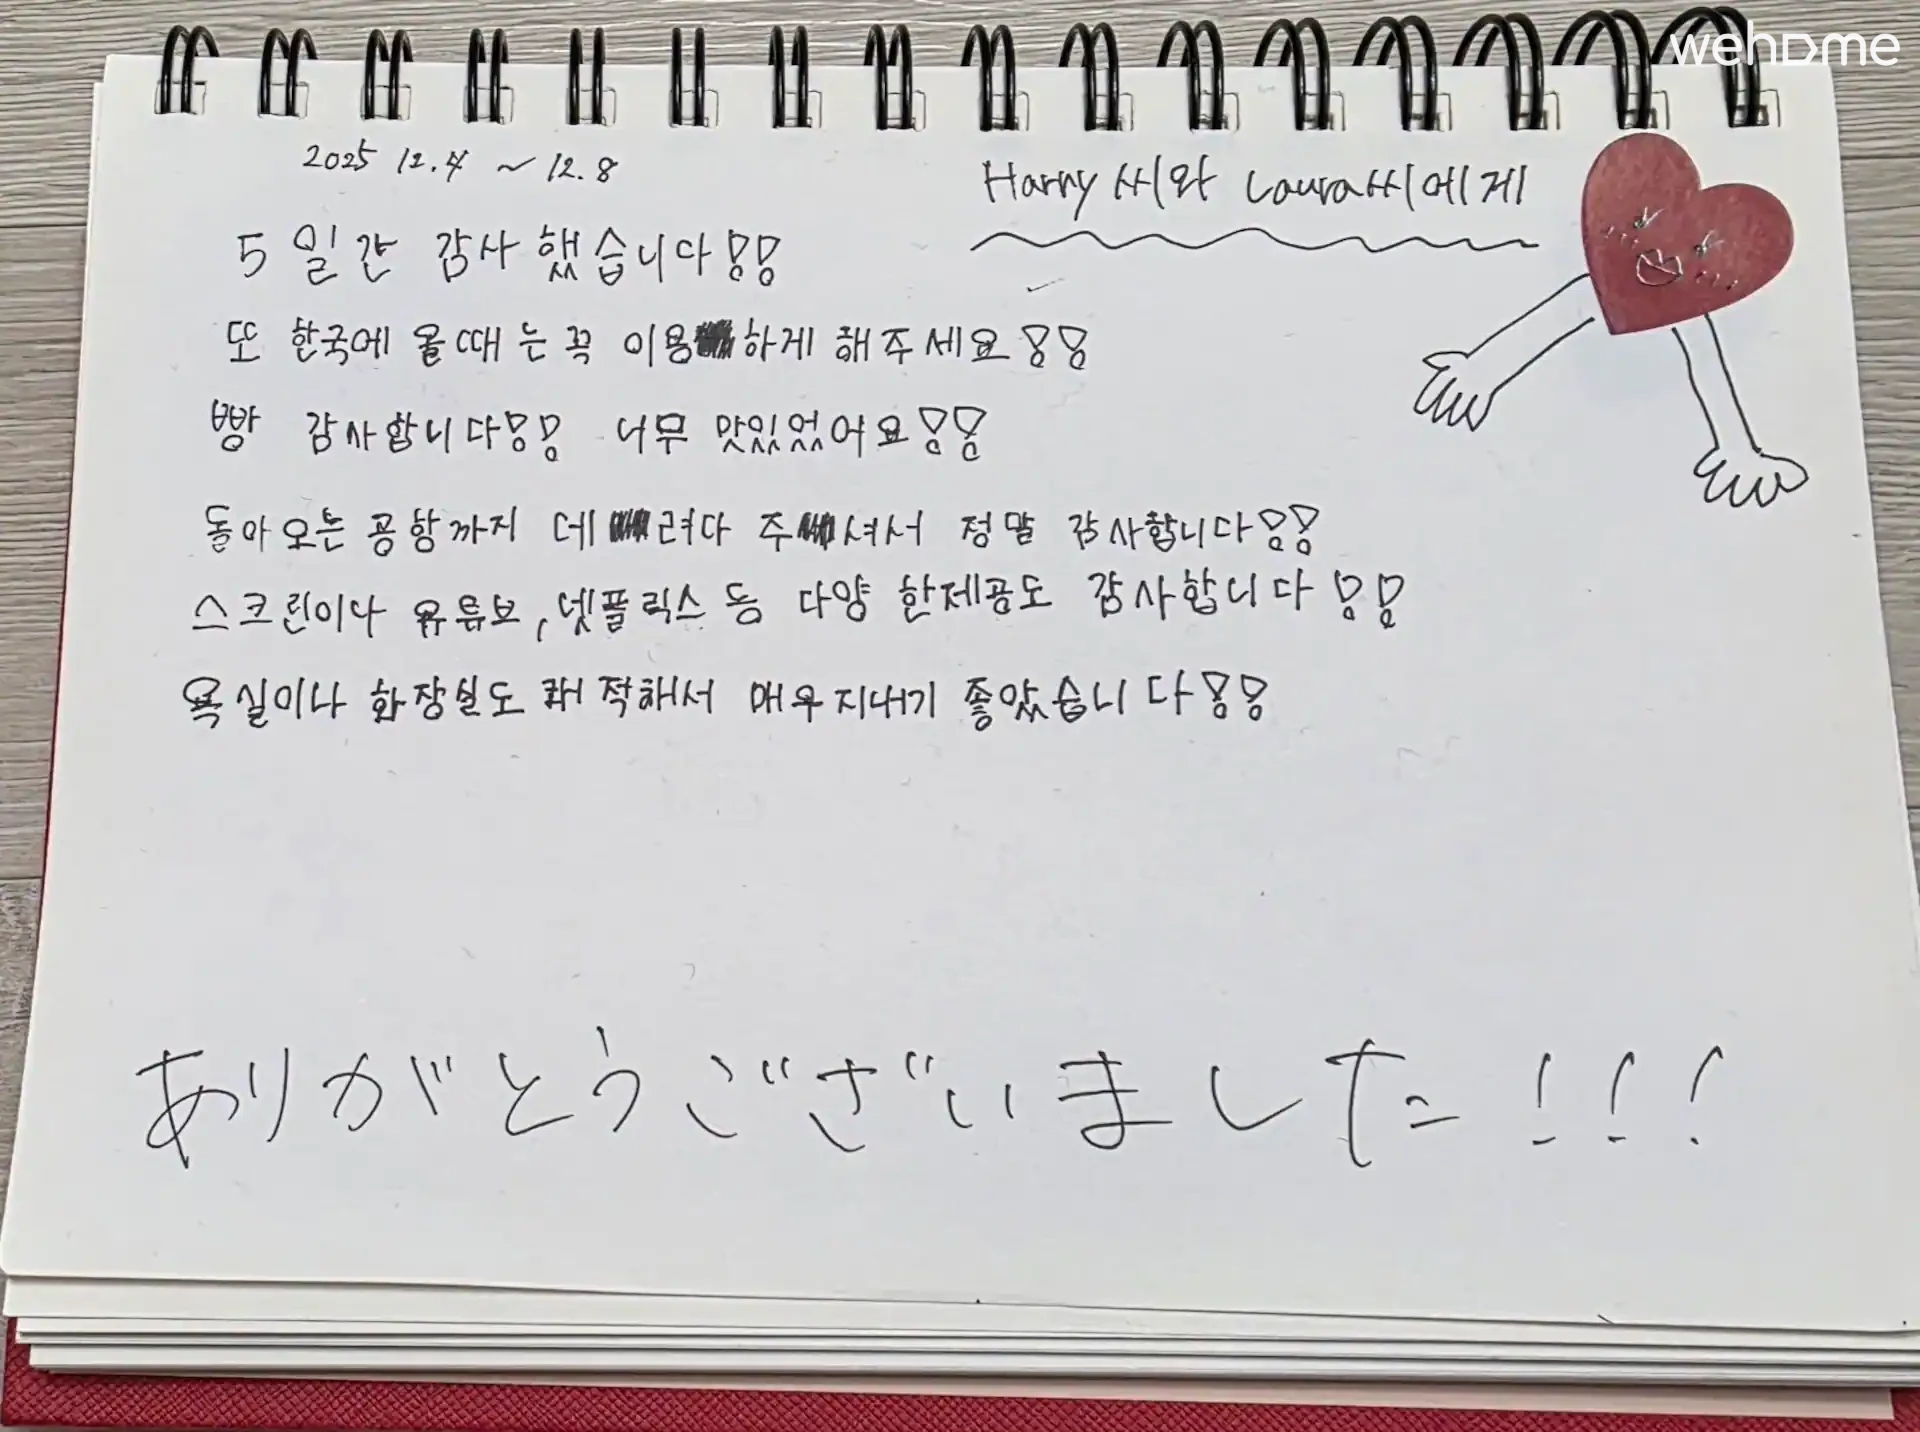 wehome
2025 12.4 ~ 12.8
Harry씨와 Laura씨에게
5일간 감사했습니다!!
또 한국에 올때는 꼭 이용하게 해주세요!!
빵 감사합니다!! 너무 맛있었어요!!
돌아오는 공항까지 데려다 주셔서 정말 감사합니다!!
스크린이나 유튜브, 넷플릭스 등 다양한제공도 감사합니다!!
욕실이나 화장실도 쾌적해서 매우지내기 좋았습니다!!
ありがとうございました!!!